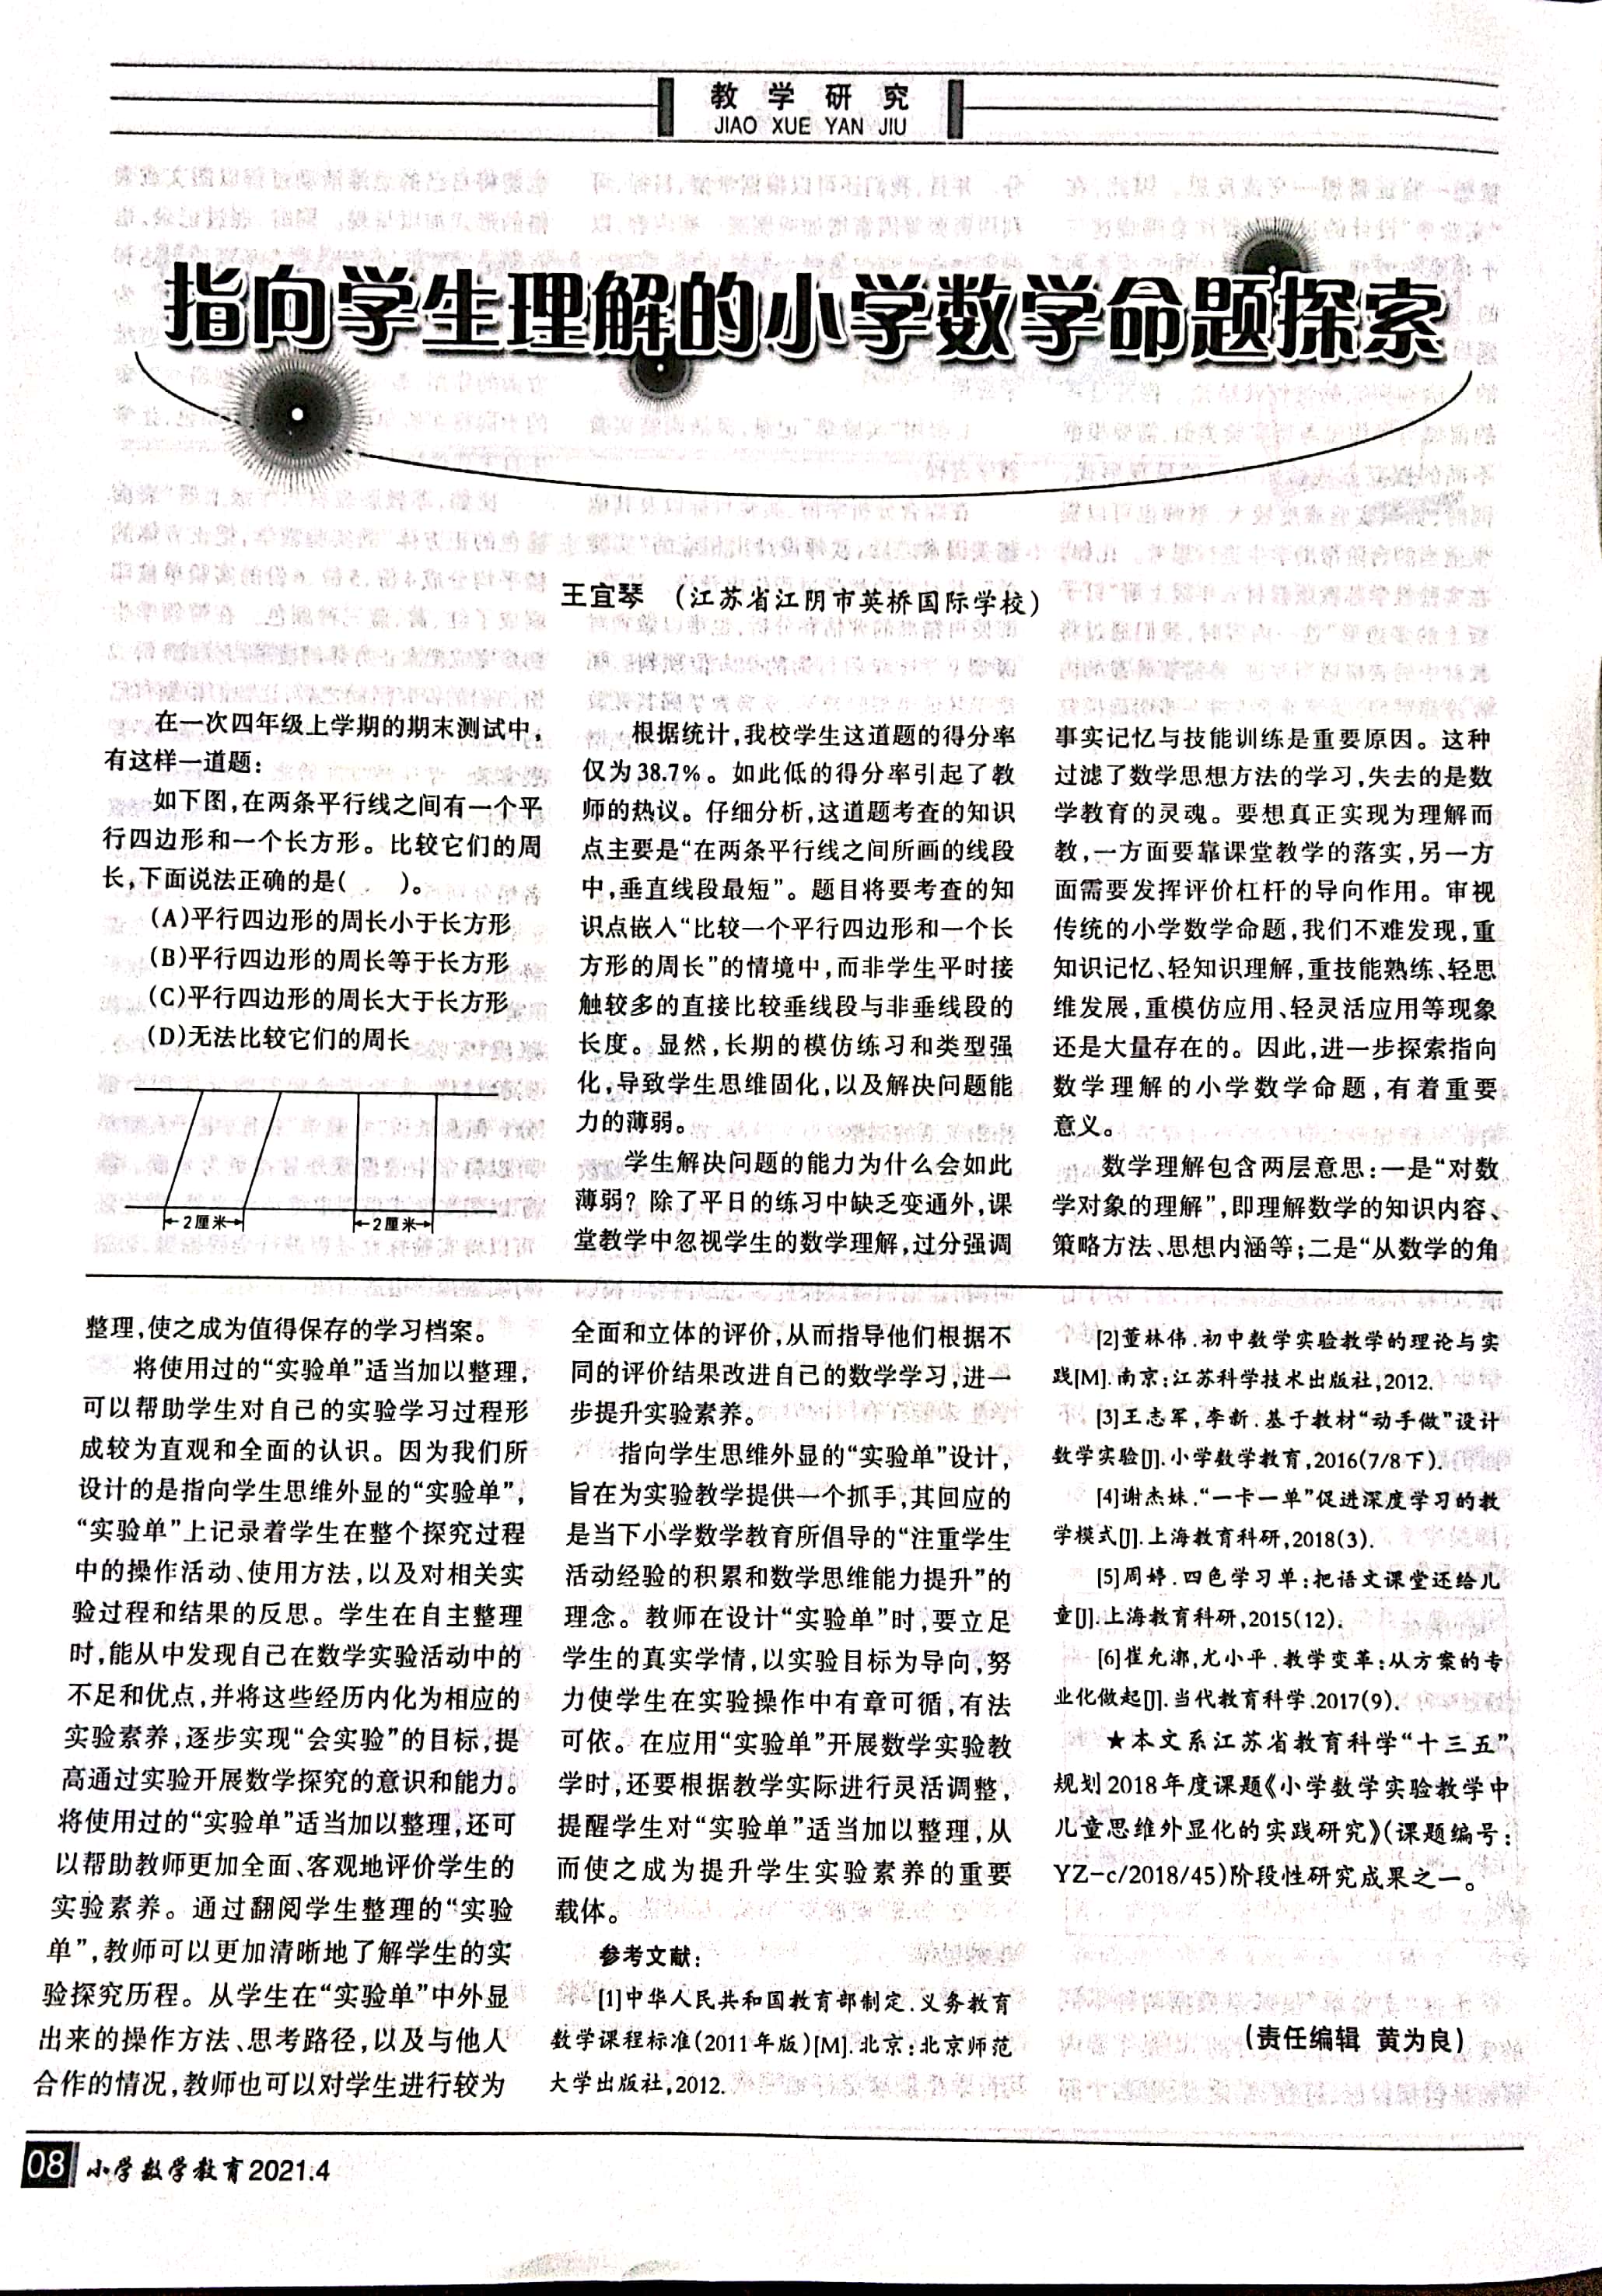 教 学 研 究
JIAO XUE YAN JIU
指向学生理解的小学数学命题探索
王宜琴 (江苏省江阴市英桥国际学校)
在一次四年级上学期的期末测试中,
有这样一道题:
如下图,在两条平行线之间有一个平
行四边形和一个长方形。比较它们的周
长,下面说法正确的是( )。
(A)平行四边形的周长小于长方形
(B)平行四边形的周长等于长方形
(C)平行四边形的周长大于长方形
(D)无法比较它们的周长
2厘米 2厘米
根据统计,我校学生这道题的得分率
仅为38.7%。如此低的得分率引起了教
师的热议。仔细分析,这道题考查的知识
点主要是“在两条平行线之间所画的线段
中,垂直线段最短”。题目将要考查的知
识点嵌入“比较一个平行四边形和一个长
方形的周长”的情境中,而非学生平时接
触较多的直接比较垂线段与非垂线段的
长度。显然,长期的模仿练习和类型强
化,导致学生思维固化,以及解决问题能
力的薄弱。
学生解决问题的能力为什么会如此
薄弱?除了平日的练习中缺乏变通外,课
堂教学中忽视学生的数学理解,过分强调
事实记忆与技能训练是重要原因。这种
过滤了数学思想方法的学习,失去的是数
学教育的灵魂。要想真正实现为理解而
教,一方面要靠课堂教学的落实,另一方
面需要发挥评价杠杆的导向作用。审视
传统的小学数学命题,我们不难发现,重
知识记忆、轻知识理解,重技能熟练、轻思
维发展,重模仿应用、轻灵活应用等现象
还是大量存在的。因此,进一步探索指向
数学理解的小学数学命题,有着重要
意义。
数学理解包含两层意思:一是“对数
学对象的理解”,即理解数学的知识内容、
策略方法、思想内涵等;二是“从数学的角
整理,使之成为值得保存的学习档案。
将使用过的“实验单”适当加以整理,
可以帮助学生对自己的实验学习过程形
成较为直观和全面的认识。因为我们所
设计的是指向学生思维外显的“实验单”,
“实验单”上记录着学生在整个探究过程
中的操作活动、使用方法,以及对相关实
验过程和结果的反思。学生在自主整理
时,能从中发现自己在数学实验活动中的
不足和优点,并将这些经历内化为相应的
实验素养,逐步实现“会实验”的目标,提
高通过实验开展数学探究的意识和能力。
将使用过的“实验单”适当加以整理,还可
以帮助教师更加全面、客观地评价学生的
实验素养。通过翻阅学生整理的“实验
单”,教师可以更加清晰地了解学生的实
验探究历程。从学生在“实验单”中外显
出来的操作方法、思考路径,以及与他人
合作的情况,教师也可以对学生进行较为
全面和立体的评价,从而指导他们根据不
同的评价结果改进自己的数学学习,进一
步提升实验素养。
指向学生思维外显的“实验单”设计,
旨在为实验教学提供一个抓手,其回应的
是当下小学数学教育所倡导的“注重学生
活动经验的积累和数学思维能力提升”的
理念。教师在设计“实验单”时,要立足
学生的真实学情,以实验目标为导向,努
力使学生在实验操作中有章可循,有法
可依。在应用“实验单”开展数学实验教
学时,还要根据教学实际进行灵活调整,
提醒学生对“实验单”适当加以整理,从
而使之成为提升学生实验素养的重要
载体。
参考文献:
[1]中华人民共和国教育部制定.义务教育
数学课程标准(2011年版)[M].北京:北京师范
大学出版社,2012.
[2]董林伟.初中数学实验教学的理论与实
践[M].南京:江苏科学技术出版社,2012.
[3]王志军,李新.基于教材“动手做”设计
数学实验[J].小学数学教育,2016(7/8下).
[4]谢杰妹.“一卡一单”促进深度学习的教
学模式[J].上海教育科研,2018(3).
[5]周婷.四色学习单:把语文课堂还给儿
童[J].上海教育科研,2015(12).
[6]崔允漷,尤小平.教学变革:从方案的专
业化做起[J].当代教育科学.2017(9).
★本文系江苏省教育科学“十三五”
规划2018年度课题《小学数学实验教学中
儿童思维外显化的实践研究》(课题编号:
YZ-c/2018/45)阶段性研究成果之一。
(责任编辑 黄为良)
08 小学数学教育2021.4